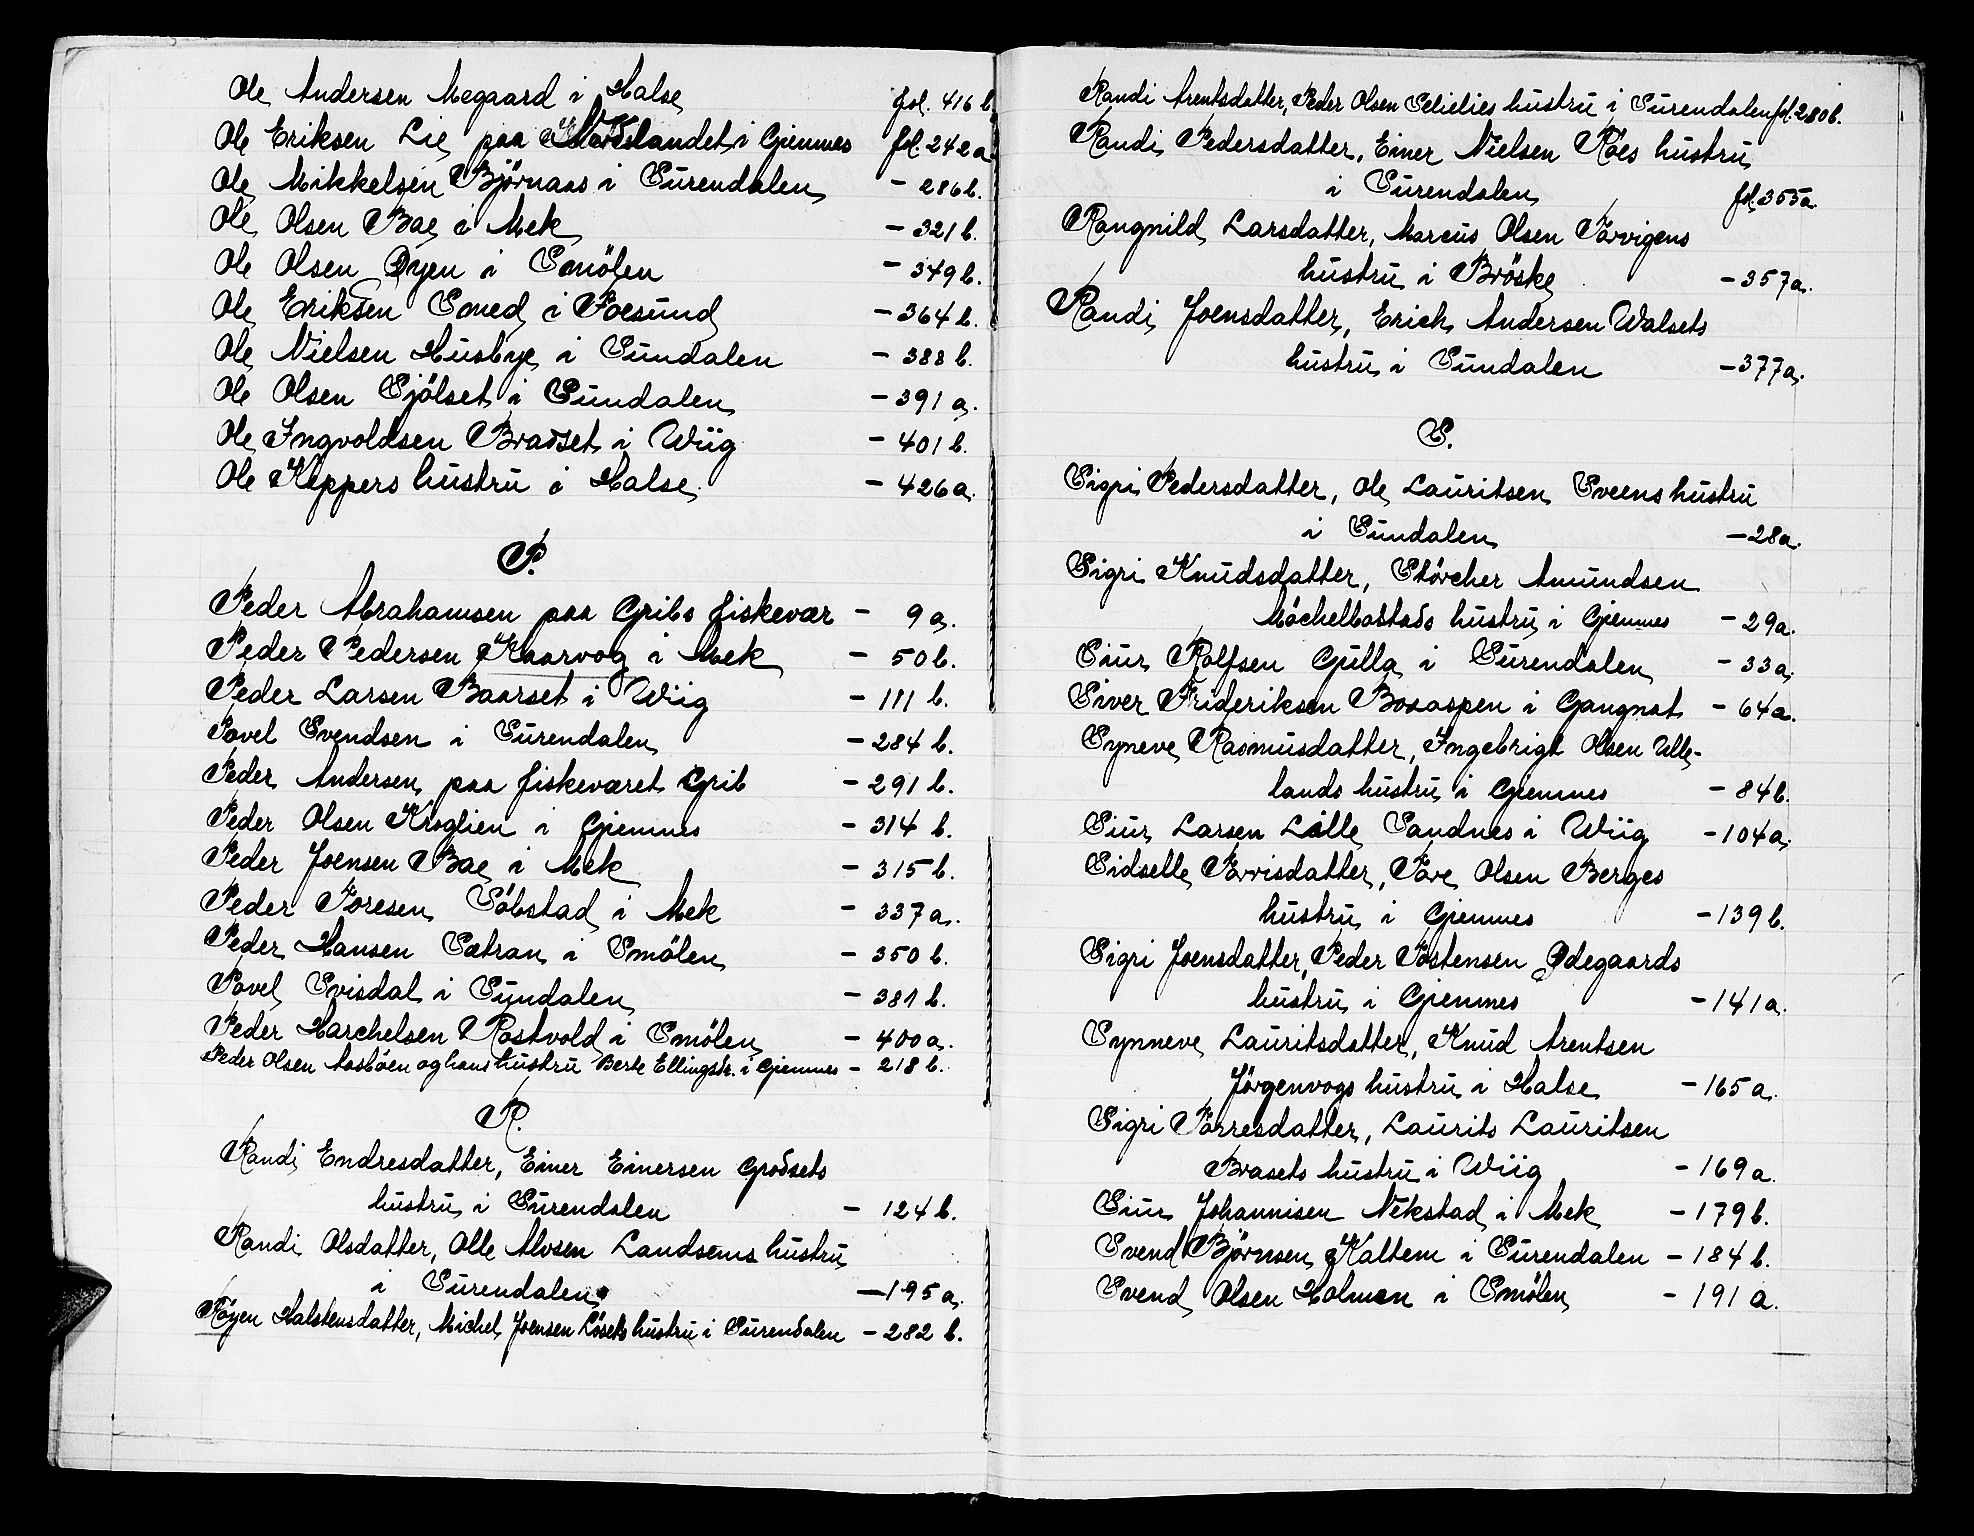 Ole Andersen Megaard i Halse fol. 416 b.
Ole Eriksen Lie paa Nordlandet i Gjemnes fol. 242 a
Ole Mikkelsen Bjørnaas i Surendalen - 286 b.
Ole Olsen Bae i Mek - 321 b.
Ole Olsen Øyen i Smölen - 349 b.
Ole Eriksen Smed i Foesund - 364 b.
Ole Nielsen Husbye i Sundalen - 388 b.
Ole Olsen Sjölset i Sundalen - 391 a.
Ole Ingvoldsen Bradset i Wiig - 401 b.
Ole Kippers hustru i Halse - 426 a.
P.
Peder Abrahamsen paa Gribs fiskevær - 9 a.
Peder Pedersen Kaarvog i Mek - 50 b.
Peder Larsen Baarset i Wiig - 111 b.
Povel Svendsen i Surendalen - 284 b.
Peder Andersen paa fiskeværet Grib - 291 b.
Peder Olsen Kroglien i Gjemnes - 314 b.
Peder Joensen Bae i Mek - 315 b.
Peder Toresen Söbstad i Mek - 337 a.
Peder Hansen Sætran i Smölen - 350 b.
Povel Svisdal i Sundalen - 381 b.
Peder Harchelsen Rostvold i Smölen - 400 a.
Peder Olsen Aasböen og hans hustru Berte Ellingsdr. i Gjemnes - 218 b.
R.
Randi Endresdatter, Einer Einersen Grodsets
hustru i Surendalen - 124 b.
Randi Olsdatter, Olle Alvsen Landsems hustru
i Surendalen - 195 a.
Föyen Halstensdatter, Michel Joensen Løsets hustru i Surendalen - 282 b.
Randi Arentsdatter, Peder Olsen hustru i Surendalen fol. 280 b.
Randi Pedersdatter, Einer Nielsen Röes hustru
i Surendalen fol. 355 a.
Rangnild Larsdatter, Marcus Olsen Torvigens
hustru i Bröske - 357 a.
Randi Joensdatter, Erich Andersen Walsets
hustru i Sundalen - 377 a.
S.
Sigri Pedersdatter, Ole Lauritsen Sveens hustru
i Sundalen - 28 a.
Sigri Knudsdatter, Störcher Amundsen
Möchelbostads hustru i Gjemnes - 29 a.
Siur Rolfsen Gulla i Surendalen - 33 a.
Siver Frideriksen Boxaspen i Gangnat - 64 a.
Syneve Rasmusdatter, Ingebrigt Olsen Ulle-
lands hustru i Gjemnes - 84 b.
Siur Larsen Lille Sandnes i Wiig - 104 a.
Sidselle Torrisdatter, Tore Olsen Berges
hustru i Gjemnes - 139 b.
Sigri Joensdatter, Peder Tostensen Ødegaards
hustru i Gjemnes - 141 a.
Synneve Lauritsdatter, Knud Arentsen
Jörgenvogs hustru i Halse - 165 a.
Sigri Torresdatter, Laurits Lauritsen
Brasets hustru i Wiig - 169 a.
Siur Johannisen Nekstad i Mek - 179 b.
Svend Björnsen Kaltem i Surendalen - 184 b.
Svend Olsen Holmen i Smölen - 191 a.